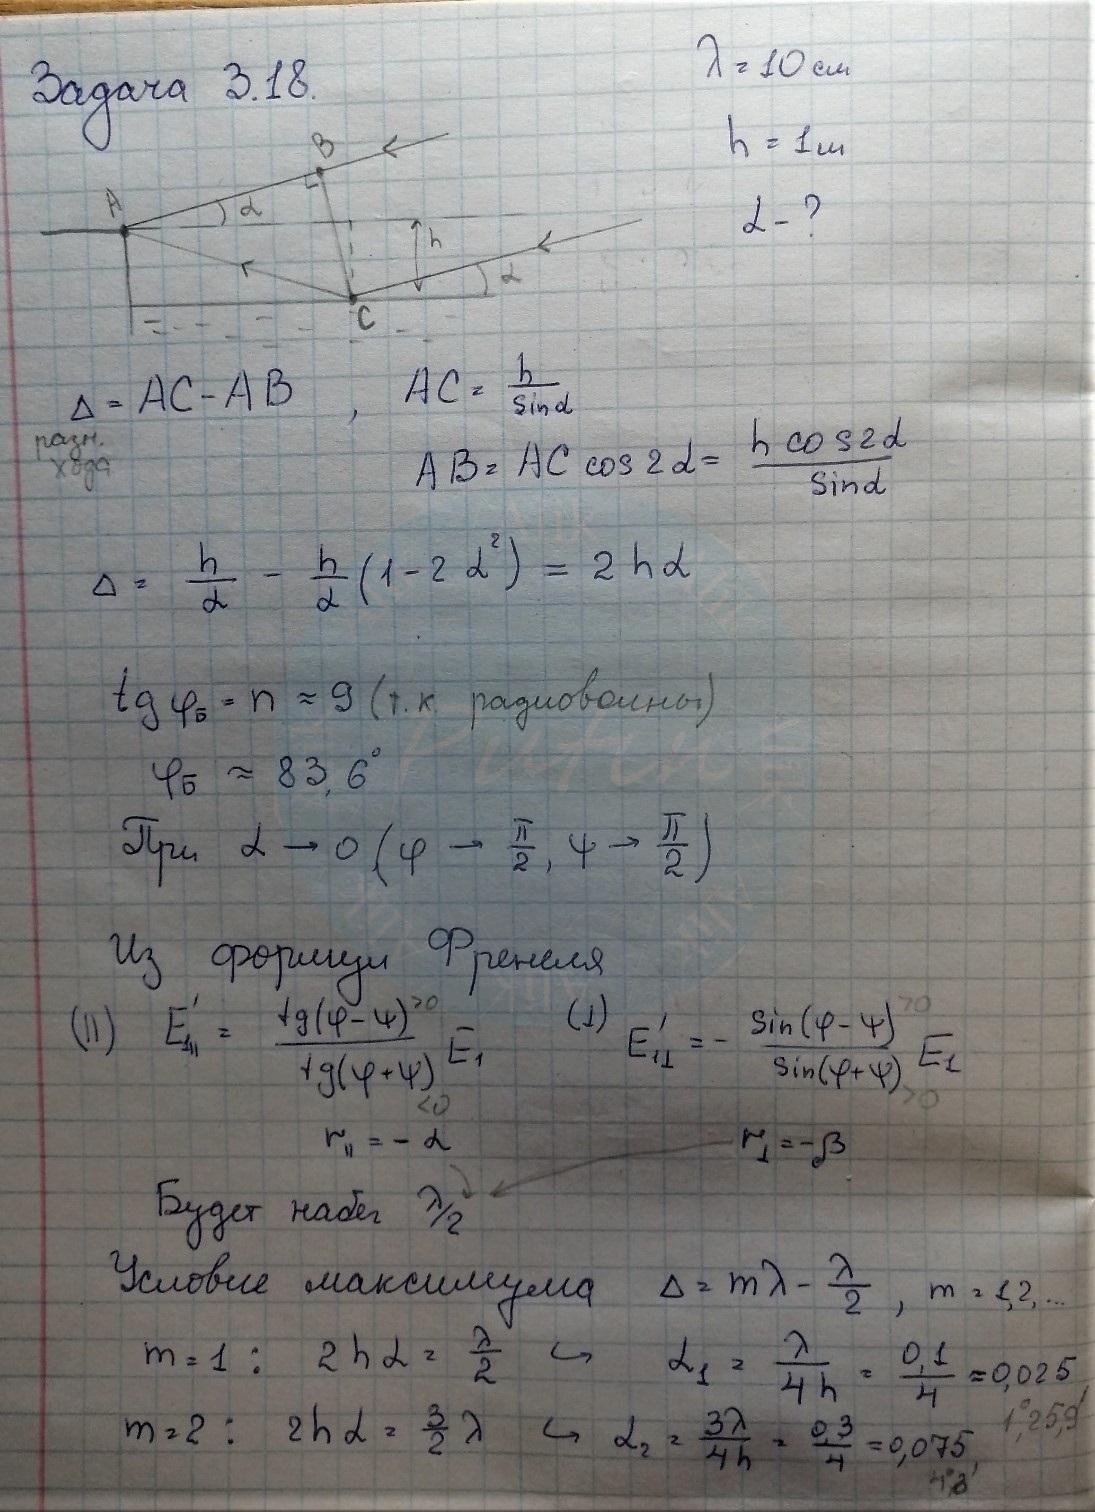 Задача 3.18.
λ = 10 см
h = 1 м
α - ?
A
B
α
h
α
C
Δ = AC - AB , AC = h / sin α
разн. хода
AB = AC cos 2α = h cos 2α / sin α
Δ = h/α - h/α (1 - 2α²) = 2hα
tg φБ = n ≈ 9 (т.к. радиоволны)
φБ ≈ 83,6°
При α → 0 (φ → π/2, ψ → π/2)
Из формул Френеля
(II) E₁∥' = tg(φ-ψ) >0 / tg(φ+ψ) <0 E₁ (⊥) E₁⊥' = - sin(φ-ψ) >0 / sin(φ+ψ) >0 E₁
r∥ = - α r⊥ = -β
Будет набег λ/2
Условие максимума Δ = mλ - λ/2 , m = 1,2,...
m = 1 : 2hα = λ/2 ↪ α₁ = λ/4h = 0,1/4 = 0,025
1°25,9'
m = 2 : 2hα = 3/2 λ ↪ α₂ = 3λ/4h = 0,3/4 = 0,075